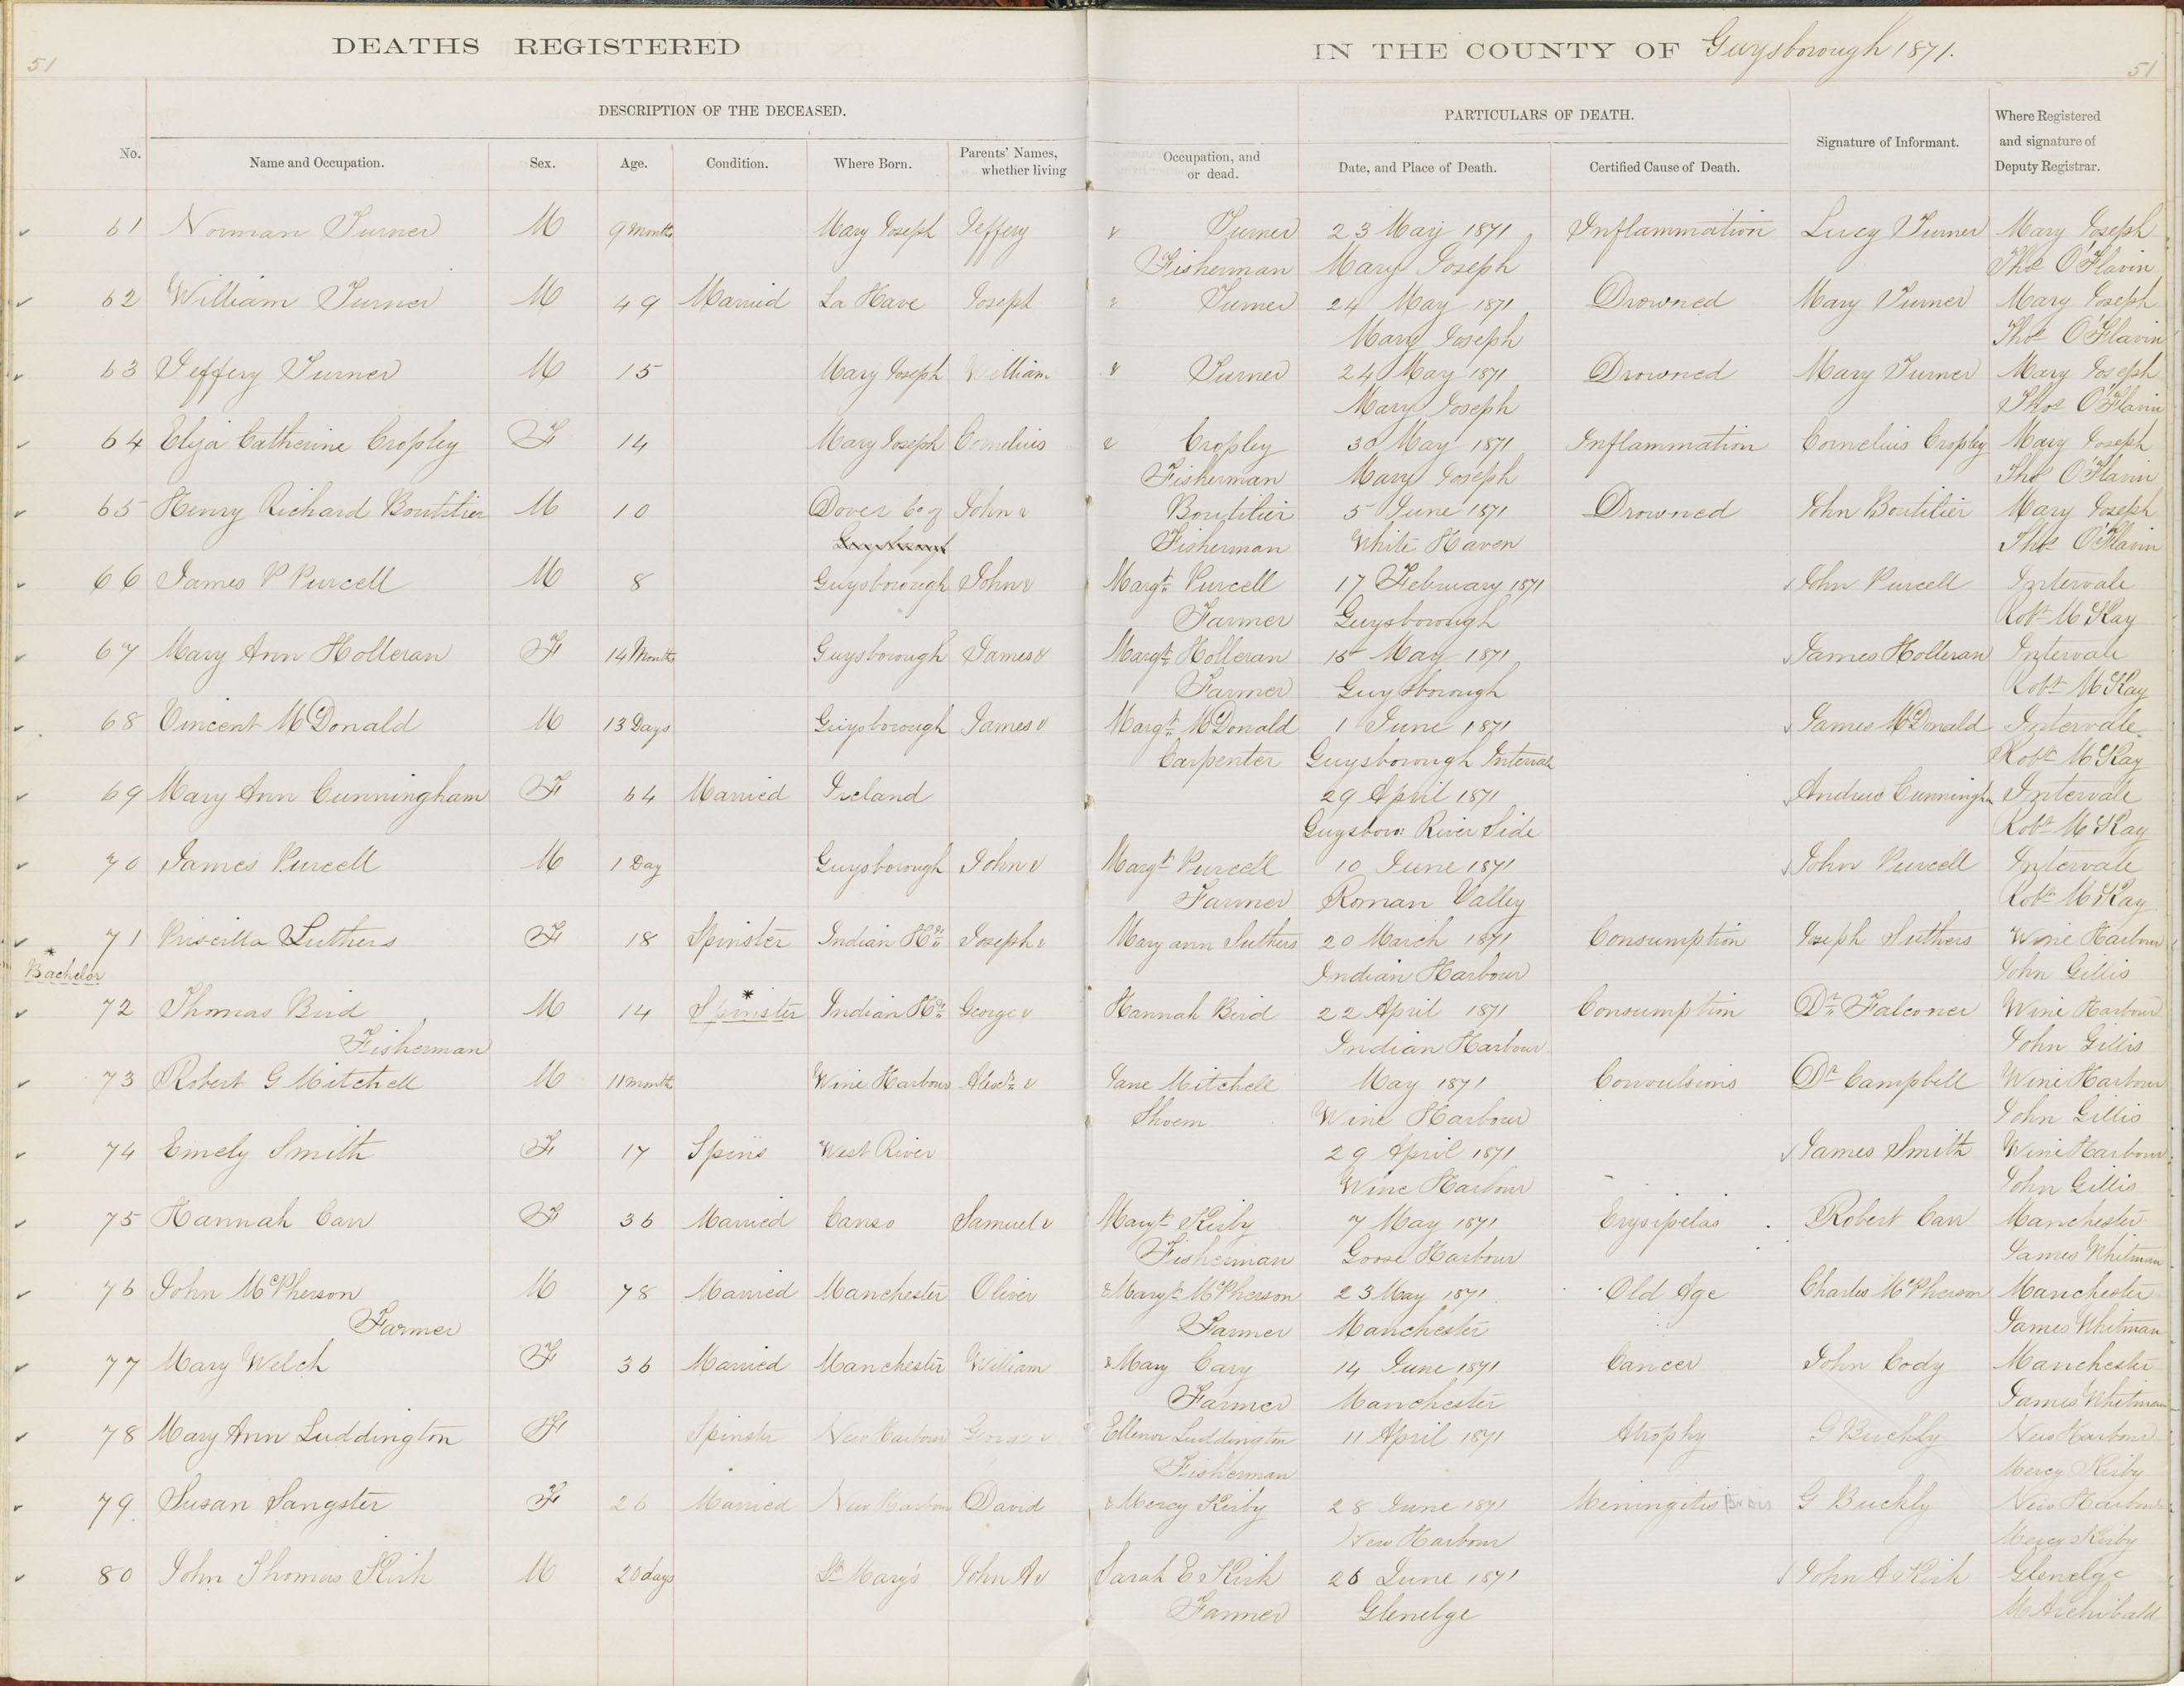 51
DEATHS REGISTERED IN THE COUNTY OF Guysborough 1871.
51
DESCRIPTION OF THE DECEASED. PARTICULARS OF DEATH.
No. Name and Occupation. Sex. Age. Condition. Where Born. Parents' Names, whether living Occupation, and or dead. Date, and Place of Death. Certified Cause of Death. Signature of Informant. Where Registered and signature of Deputy Registrar.
61 Norman Turner M 9 Months Mary Joseph Jeffery & Turner 23 May 1871 Inflammation Lucy Turner Mary Joseph
Fisherman Mary Joseph Thos O'Flavin
62 William Turner M 49 Married La Have Joseph & Turner 24 May 1871 Drowned Mary Turner Mary Joseph
Mary Joseph Thos O'Flavin
63 Jeffery Turner M 15 Mary Joseph William & Turner 24 May 1871 Drowned Mary Turner Mary Joseph
Mary Joseph Thos O'Flavin
64 Eliza Catherine Cropley F 14 Mary Joseph Cornelius & Cropley 30 May 1871 Inflammation Cornelius Cropley Mary Joseph
Fisherman Mary Joseph Thos O'Flavin
65 Henry Richard Boutilier M 10 Dover Co of John & Boutilier 5 June 1871 Drowned John Boutilier Mary Joseph
Fisherman White Haven Thos O'Flavin
66 James P Purcell M 8 Guysborough John & Margt Purcell 17 February 1871 John Purcell Intervale
Farmer Guysborough Robt McKay
67 Mary Ann Holleran F 14 Months Guysborough James & Margt Holleran 15 May 1871 James Holleran Intervale
Farmer Guysborough Robt McKay
68 Vincent McDonald M 13 Days Guysborough James & Margt McDonald 1 June 1871 James McDonald Intervale
Carpenter Guysborough Interval Robt McKay
69 Mary Ann Cunningham F 64 Married Ireland 29 April 1871 Andrew Cunningham Intervale
Guysboro: River Side Robt McKay
70 James Purcell M 1 Day Guysborough John & Margt Purcell 10 June 1871 John Purcell Intervale
Farmer Roman Valley Robt McKay
71 Priscilla Suthers F 18 Spinster Indian Hr Joseph & Mary ann Suthers 20 March 1871 Consumption Joseph Suthers Wine Harbour
* Bachelor Indian Harbour John Gillis
72 Thomas Bird M 14 Spinster * Indian Hr George & Hannah Bird 22 April 1871 Consumption Dr Falconer Wine Harbour
Fisherman Indian Harbour John Gillis
73 Robert G Mitchell M 11 month Wine Harbour Alexr & Jane Mitchell May 1871 Convulsions Dr Campbell Wine Harbour
Shoem Wine Harbour John Gillis
74 Emely Smith F 17 Spins West River 29 April 1871 James Smith Wine Harbour
Wine Harbour John Gillis
75 Hannah Carr F 36 Married Canso Samuel & Maryt Kirby 7 May 1871 Erysipelas Robert Carr Manchester
Fisherman Goose Harbour James Whitman
76 John McPherson M 78 Married Manchester Oliver & Maryt McPherson 23 May 1871 Old Age Charles McPherson Manchester
Farmer Farmer Manchester James Whitman
77 Mary Welch F 36 Married Manchester William & Mary Cary 14 June 1871 Cancer John Cody Manchester
Farmer Manchester James Whitman
78 Mary Ann Luddington F Spinster New Harbour George & Ellenor Luddington 11 April 1871 Atrophy G Buckly New Harbour
Fisherman Mercy Kirby
79 Susan Sangster F 26 Married New Harbour David & Mercy Kirby 28 June 1871 Meningitis G Buckly New Harbour
New Harbour Mercy Kirby
80 John Thomas Kirk M 20 days St Mary's John A & Sarah E Kirk 26 June 1871 John A Kirk Glenelge
Farmer Glenelge M Archibald